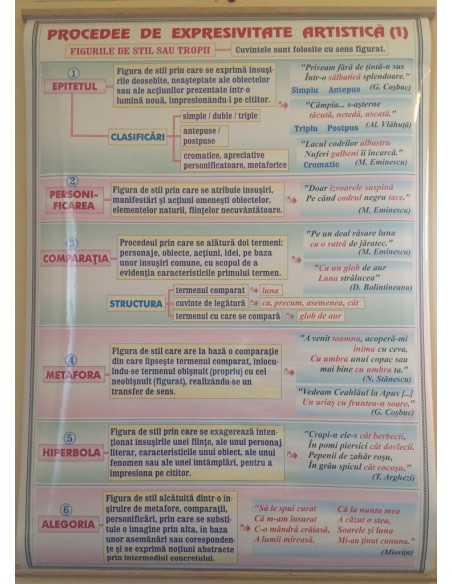 PROCEDEE DE EXPRESIVITATE ARTISTICĂ (1)
FIGURILE DE STIL SAU TROPII
Cuvintele sunt folosite cu sens figurat.
1
EPITETUL
Figura de stil prin care se exprimă însuşi-
rile deosebite, neaşteptate ale obiectelor
sau ale acţiunilor prezentate într-o
lumină nouă, impresionându-l pe cititor.
CLASIFICĂRI
simple / duble / triple
antepuse /
postpuse
cromatice, apreciative
personificatoare, metaforice
"Priveam fără de ţintă-n sus
Într-o sălbatică splendoare."
Simplu Antepus (G. Coşbuc)
"Câmpia... s-aşterne
tăcută, netedă, uscată."
Triplu Postpus (Al. Vlăhuţă)
"Lacul codrilor albastru
Nuferi galbeni îl încarcă."
Cromatic (M. Eminescu)
2
PERSONI-
FICAREA
Figura de stil prin care se atribuie însuşiri,
manifestări şi acţiuni omeneşti obiectelor,
elementelor naturii, fiinţelor necuvântătoare.
"Doar izvoarele suspină
Pe când codrul negru tace."
(M. Eminescu)
3
COMPARAŢIA
Procedeul prin care se alătură doi termeni:
personaje, obiecte, acţiuni, idei, pe baza
unor însuşiri comune, cu scopul de a
evidenţia caracteristicile primului termen.
"Pe un deal răsare luna
ca o vatră de jăratec."
(M. Eminescu)
"Ca un glob de aur
Luna strălucea"
(D. Bolintineanu)
STRUCTURA
termenul comparat
luna
cuvinte de legătură
ca, precum, asemenea, cât
termenul cu care se compară
glob de aur
4
METAFORA
Figura de stil care are la bază o comparaţie
din care lipseşte termenul comparat, înlocu-
indu-se termenul obişnuit (propriu) cu cel
neobişnuit (figurat), realizându-se un
transfer de sens.
"A venit toamna, acoperă-mi
inima cu ceva,
Cu umbra unui copac sau
mai bine cu umbra ta."
(N. Stănescu)
"Vedeam Ceahlăul la Apus [...]
Un uriaş cu fruntea-n soare."
(G. Coşbuc)
5
HIPERBOLA
Figura de stil prin care se exagerează inten-
ţionat însuşirile unei fiinţe, ale unui personaj
literar, caracteristicile unui obiect, ale unui
fenomen sau ale unei întâmplări, pentru a
impresiona pe cititor.
"Crapi-n ele-s cât berbecii,
În pomi piersici cât dovlecii.
Pepenii de zahăr roşu,
În grâu spicul cât cocoşu."
(T. Arghezi)
6
ALEGORIA
Figura de stil alcătuită dintr-o în-
şiruire de metafore, comparaţii,
personificări, prin care se substi-
tuie o imagine prin alta, în baza
unor asemănări sau coresponden-
ţe şi se exprimă noţiuni abstracte
prin intermediul concretului.
"Să le spui curat
Că m-am însurat
C-o mândră crăiasă,
A lumii mireasă,
Că la nunta mea
A căzut o stea,
Soarele şi luna
Mi-au ţinut cununa."
(Mioriţa)